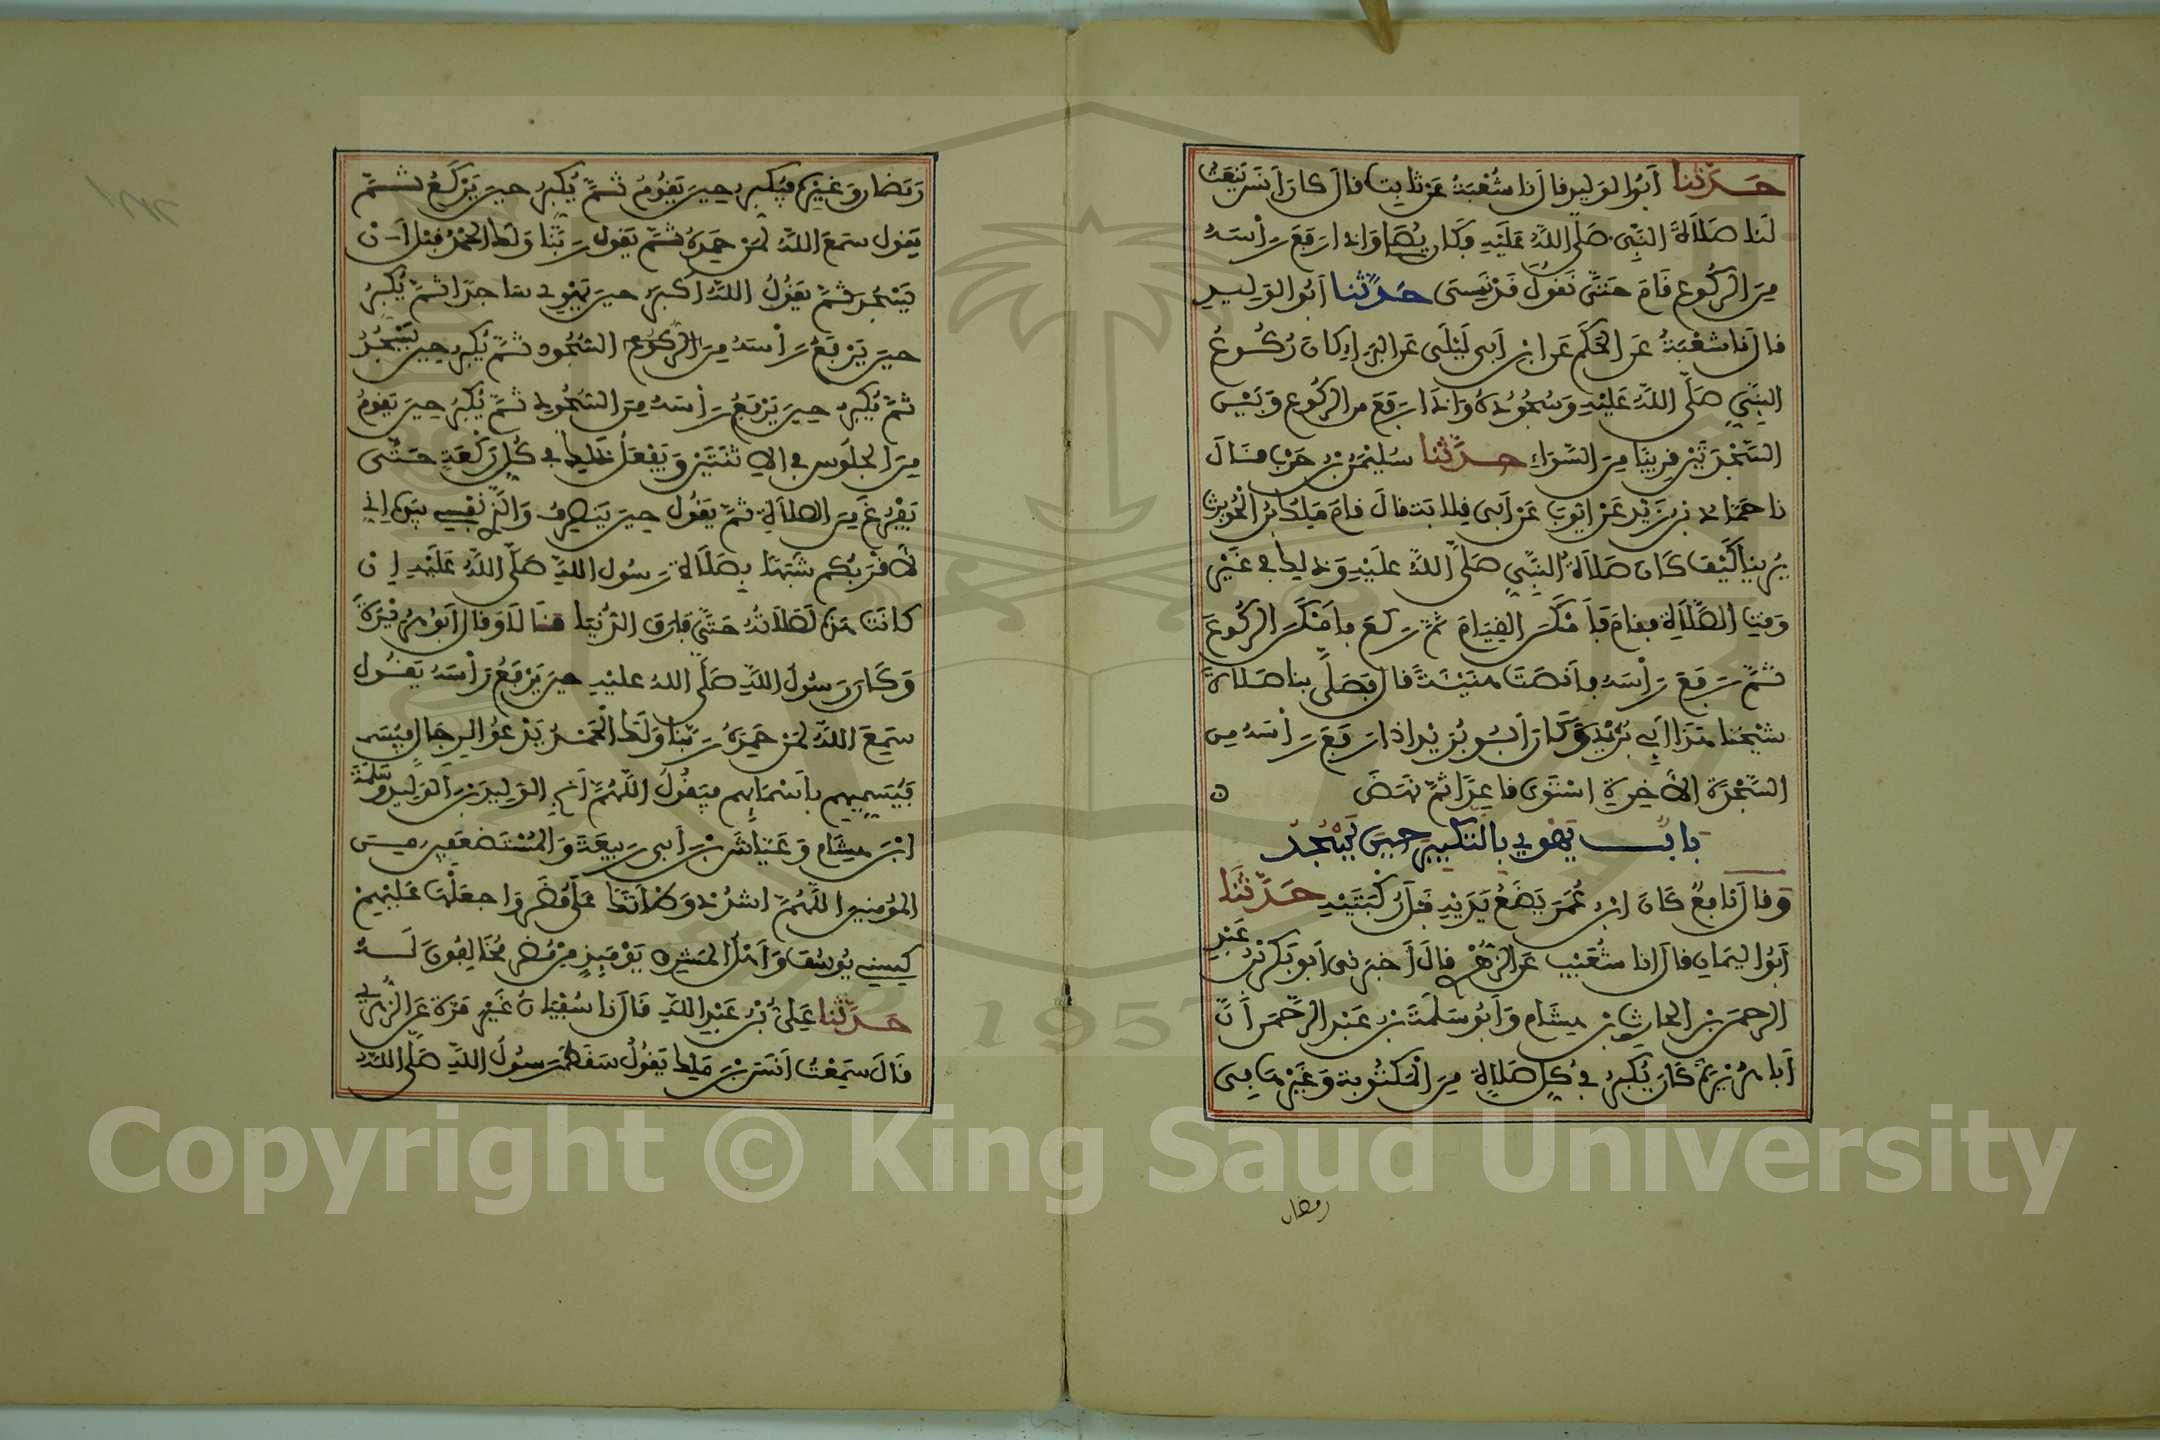 حدثنا أبو الوليد قال نا شعبة عن ثابت قال كان أنس ينعت
لنا صلاة النبي صلى الله عليه فكان يصلي وإذا رفع رأسه
من الركوع قام حتى نقول قد نسي حدثنا أبو الوليد
قال نا شعبة عن الحكم عن ابن أبي ليلى عن البراء كان ركوع
النبي صلى الله عليه وسجوده وإذا رفع من الركوع وبين
السجدتين قريبا من السواء حدثنا سليمن بن حرب قال
نا حماد بن زيد عن أيوب عن أبي قلابة قال قام ملك بن الحويرث
يرينا كيف كان صلاة النبي صلى الله عليه وذلك في غير
وقت الصلاة فقام فأمكن القيام ثم ركع فأمكن الركوع
ثم رفع رأسه فأنصت هنية قال فصلى بنا صلاة
شيخنا هذا أبي بريد وكان أبو بريد إذا رفع رأسه من
السجدة الأخيرة استوى قاعدا ثم نهض
باب يهوي بالتكبير حين يسجد
وقال نافع كان ابن عمر يضع يديه قبل ركبتيه حدثنا
أبو اليمان قال نا شعيب عن الزهري قال أخبرني أبو بكر بن عبد
الرحمن بن الحارث بن هشام وأبو سلمة بن عبد الرحمن أن
أبا هريرة كان يكبر في كل صلاة من المكتوبة وغيرها في
رمضان
رمضان وغيره فيكبر حين يقوم ثم يكبر حين يركع ثم
يقول سمع الله لمن حمده ثم يقول ربنا ولك الحمد قبل أن
يسجد ثم يقول الله أكبر حين يهوي ساجدا ثم يكبر
حين يرفع رأسه من الركوع السجود ثم يكبر حين يسجد
ثم يكبر حين يرفع رأسه من السجود ثم يكبر حين يقوم
من الجلوس في الاثنتين ويفعل ذلك في كل ركعة حتى
يفرغ من الصلاة ثم يقول حين ينصرف والذي نفسي بيده إني
لأقربكم شبها بصلاة رسول الله صلى الله عليه إن
كانت هذه لصلاته حتى فارق الدنيا قالا وقال أبو هريرة
وكان رسول الله صلى الله عليه حين يرفع رأسه يقول
سمع الله لمن حمده ربنا ولك الحمد يدعو لرجال
فيسميهم بأسمائهم فيقول اللهم أنج الوليد بن الوليد وسلمة
ابن هشام وعياش بن أبي ربيعة والمستضعفين من
المؤمنين اللهم اشدد وطأتك على مضر واجعلها عليهم
كسني يوسف وأهل المشرق يومئذ من مضر مخالفون له
حدثنا علي بن عبد الله قال نا سفيان غير مرة عن الزهري
قال سمعت أنس بن ملك يقول سقط رسول الله صلى الله
Copyright © King Saud University
1957